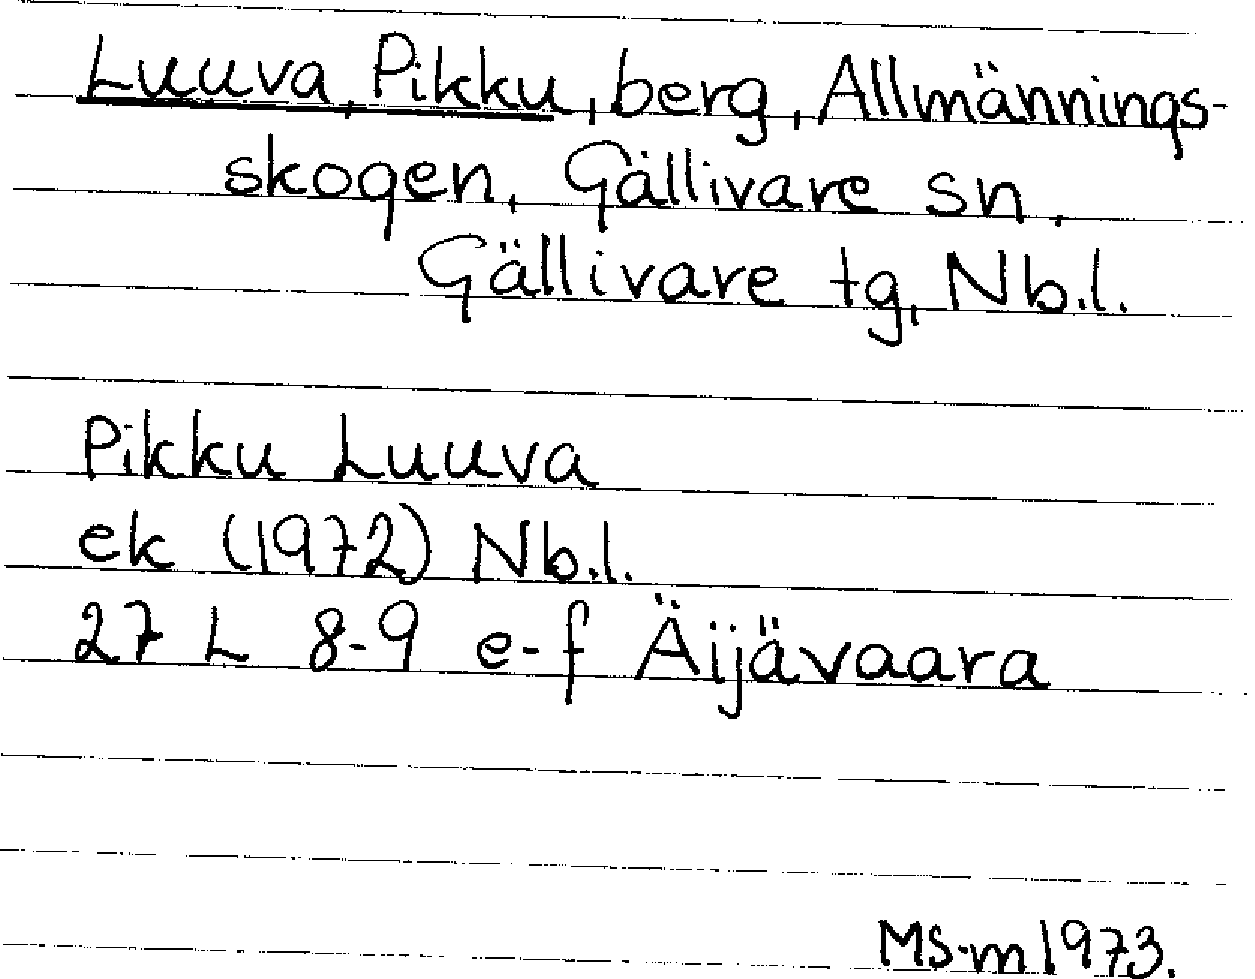 Luuva, Pikku, berg, Allmännings-
skogen, Gällivare sn,
Gällivare tg, Nb.l.
Pikku Luuva
ek (1972) Nb.l.
27 L 8-9 e-f Äijävaara
MS-m 1973.